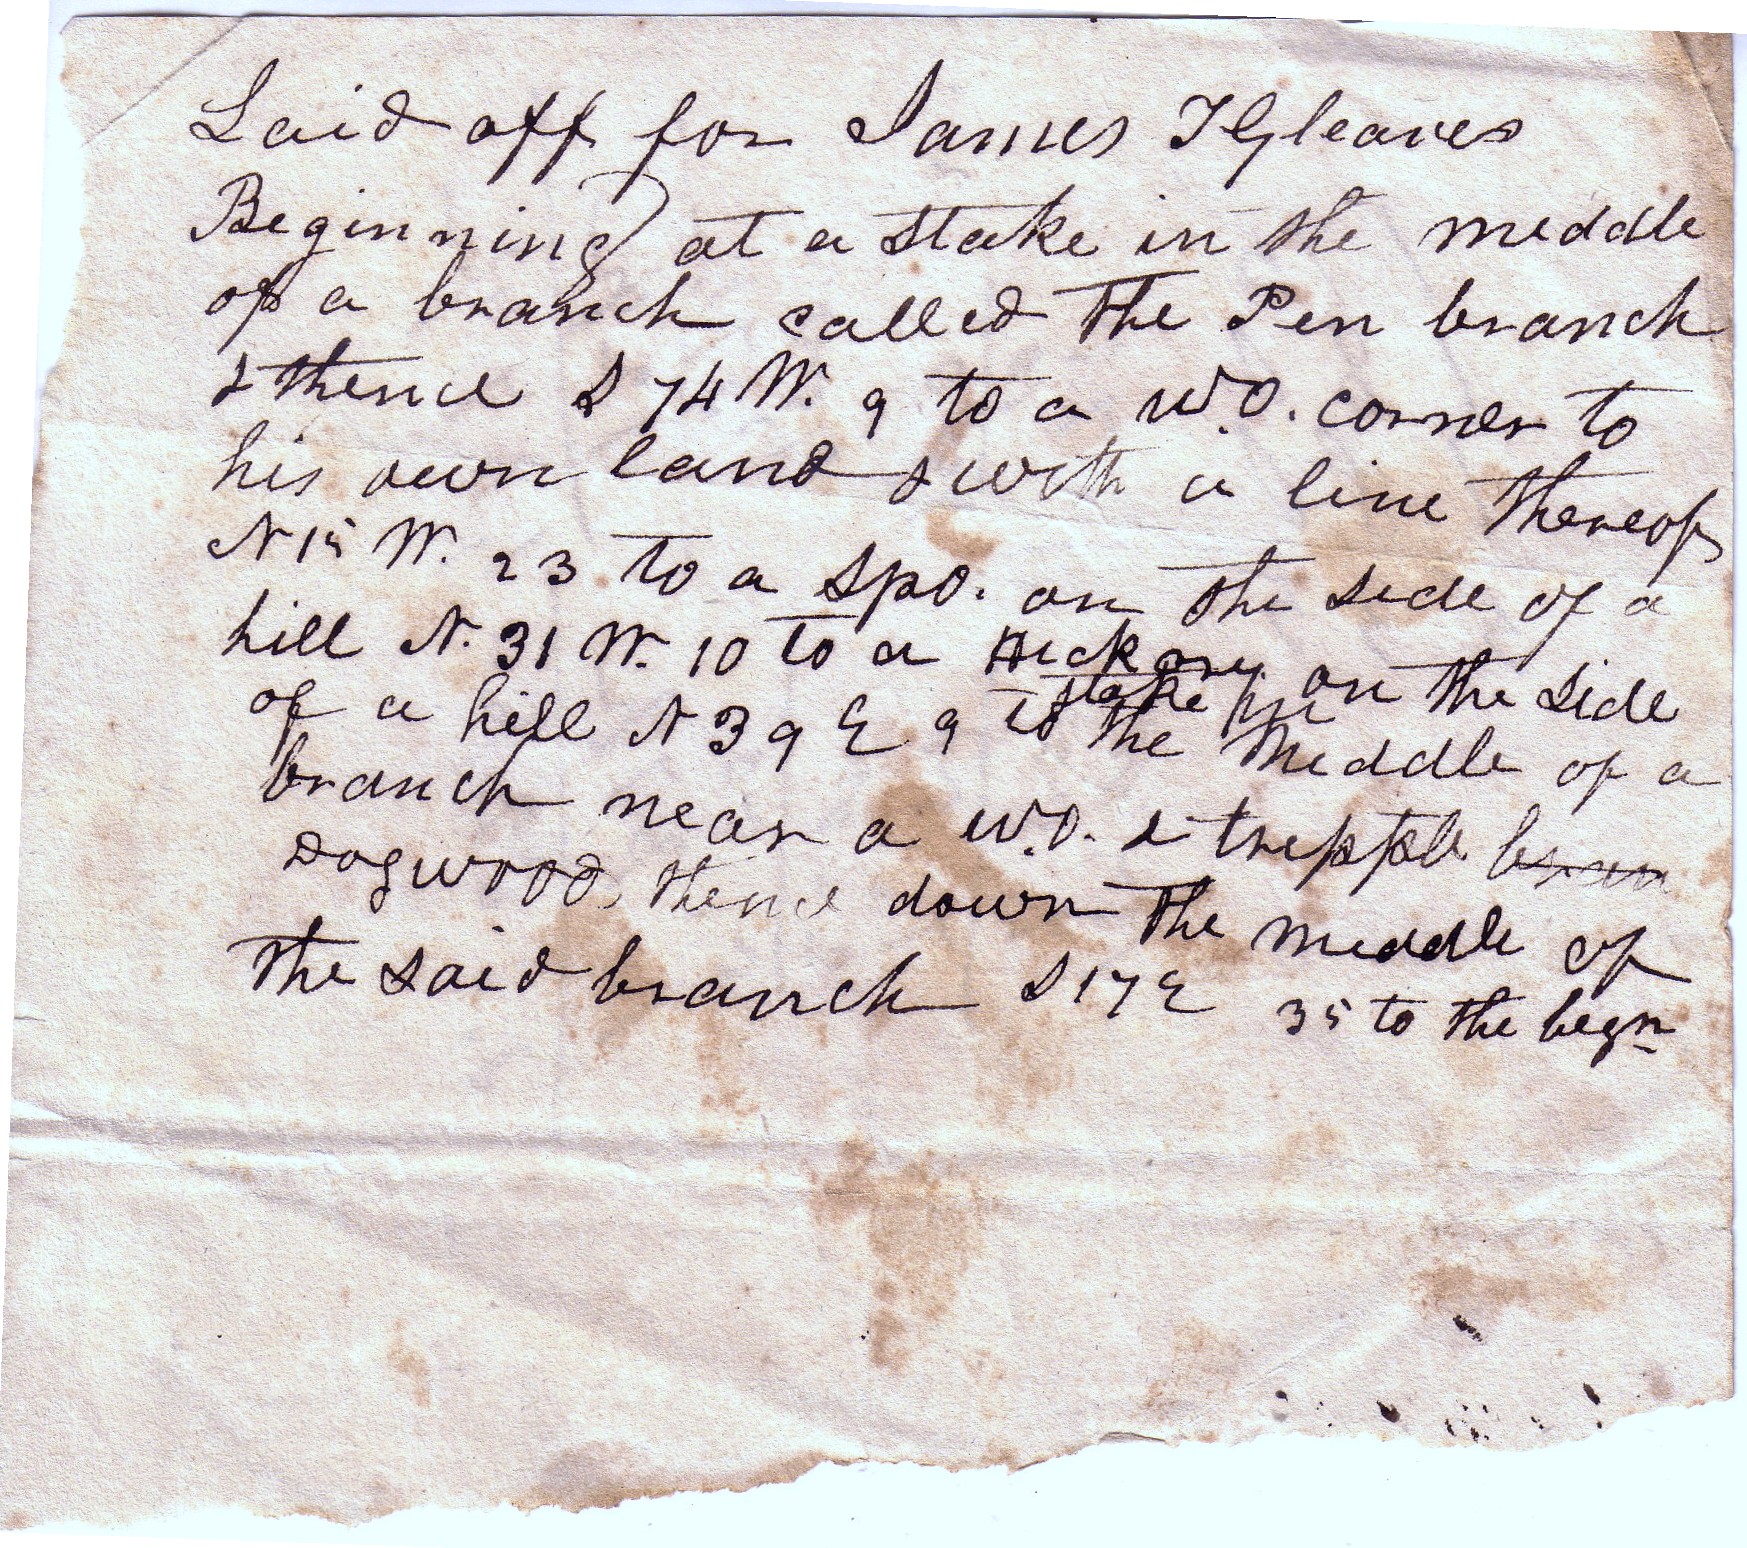 Laid off for James T Gleaves
Beginning at a stake in the middle
of a branch called the Pen branch
& thence S 74 W. 9 to a W.O. corner to
his own land & with a line thereof
N 15 W. 23 to a Spo. on the side of a
hill N. 31 W. 10 to a Hickory on the side
stake in
of a hill N 39 E 9 to the middle of a
branch near a W.O. & tripple bran
Dogwood, thence down the middle of
the said branch S 17 E 35 to the begn